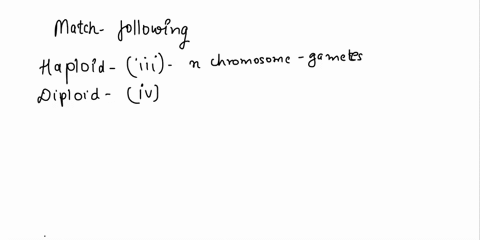 Match- following
Haploid - (iii) - n chromosome - gametes
Diploid - (iv)